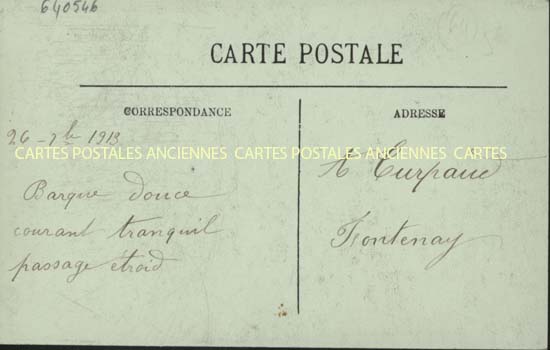 640546
CARTE POSTALE
CORRESPONDANCE
ADRESSE
26 - 7bre 1913
CARTES POSTALES ANCIENNES CARTES POSTALES ANCIENNES CARTES
Barque douce
courant tranquil
passage étroid
Turpaud
Fontenay